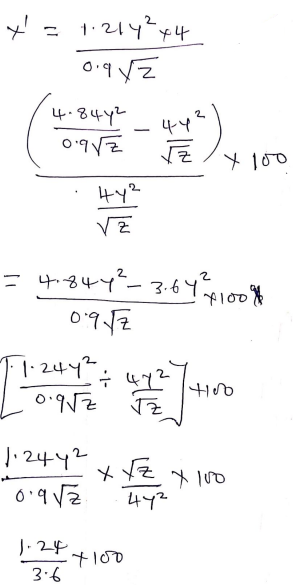 x' = 1.21y² × 4 / 0.9√z
(4.84y² / 0.9√z − 4y² / √z) / (4y² / √z) × 100
= 4.84y² − 3.6y² / 0.9√z × 100%
[1.24y² / 0.9√z ÷ 4y² / √z] × 100
1.24y² / 0.9√z × √z / 4y² × 100
1.24 / 3.6 × 100